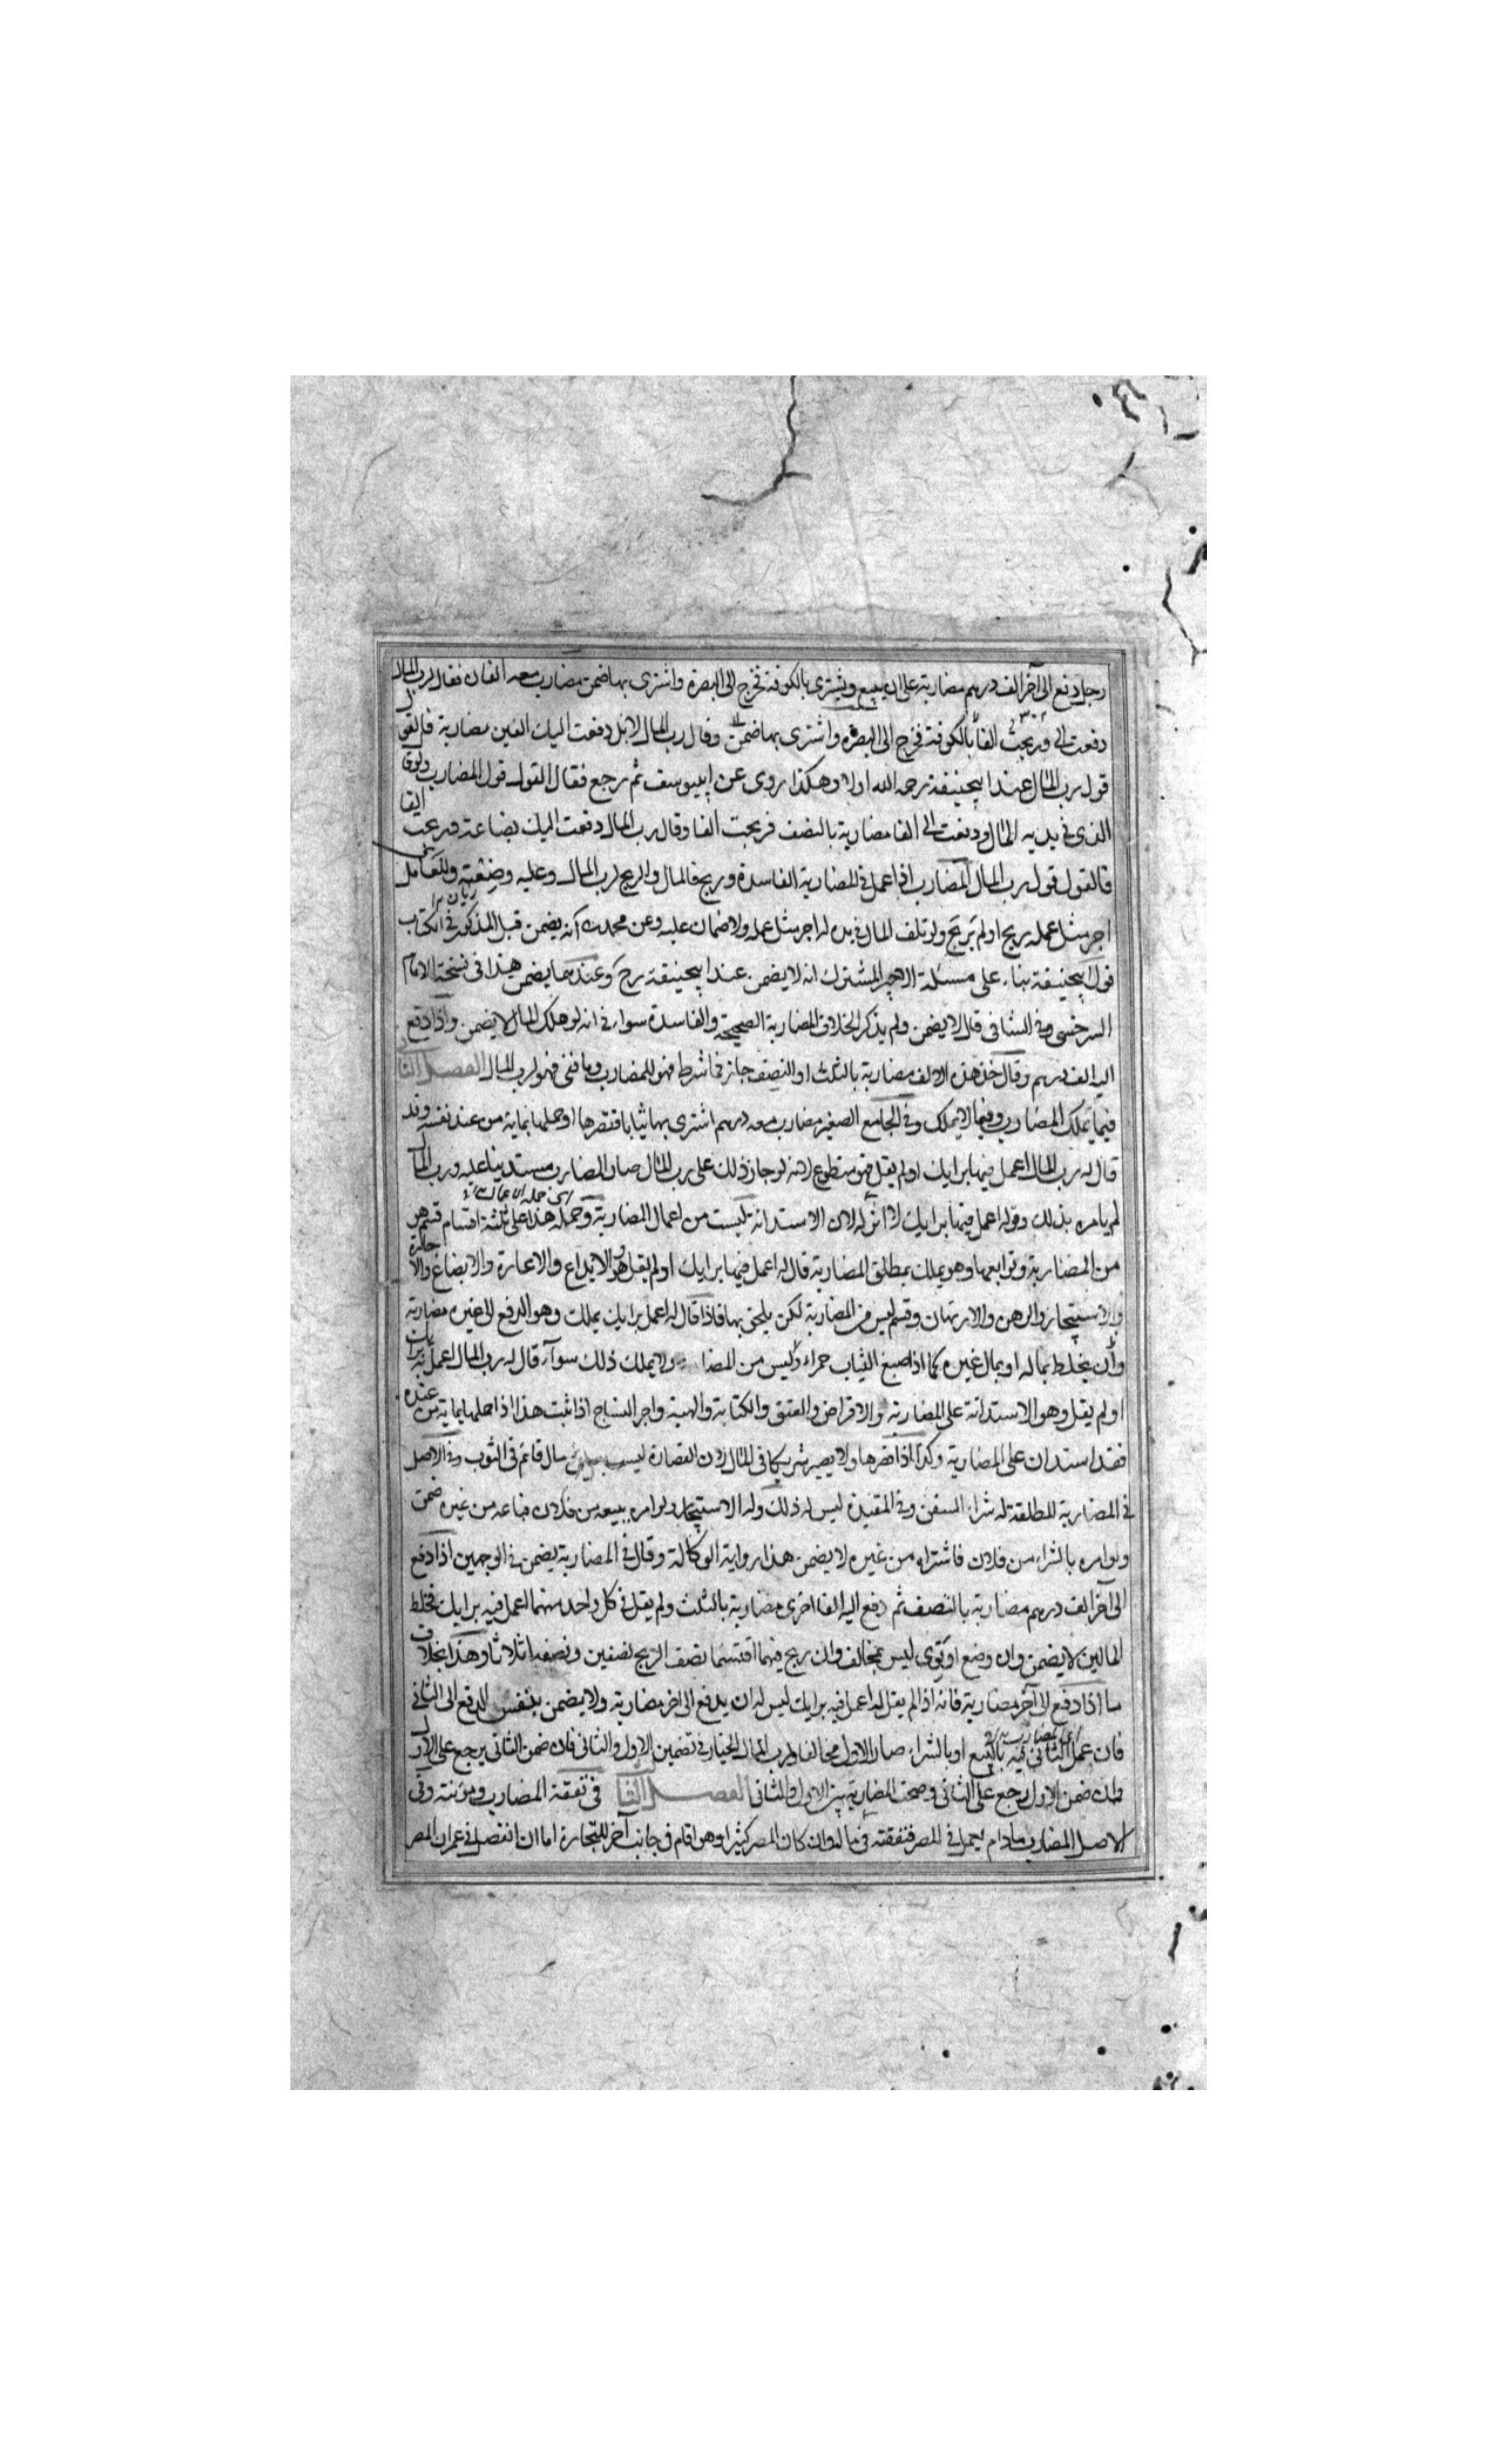 رجل دفع الى آخر الف درهم مضاربة على ان يبيع ويشترى بالكوفة فخرج الى البصرة واشترى بها ضمن مضارب معه الفان فقال لرب المال
دفعت الى وربحت الفا بالكوفة فخرج الى البصرة واشترى بها ضمن وقال رب المال لا بل دفعت اليك الفين مضاربة فالقول
قول رب المال عند ابيحنيفة رحمه الله اولا وهكذا روى عن ابييوسف ثم رجع فقال القول قول المضارب ولو قال
الذى فى يديه المال ودفعت الى الفا مضاربة بالنصف فربحت الفا وقال رب المال دفعت اليك بضاعة فربحت الفا
فالقول قول رب المال المضارب اذا عمل فى المضاربة الفاسدة وربح فالمال والربح لرب المال وعليه وضيعته وللعامل
اجر مثل عمله ربح او لم يربح ولو تلف المال فى يده له اجر مثل عمله ولا ضمان عليه وعن محمد انه يضمن قيل المذكور فى الكتاب
قول ابيحنيفة بناء على مسئلة الاجير المشترك انه لا يضمن عند ابيحنيفة رح وعندهما يضمن هذا فى نسخة الامام
السرخسى وفى الشافى قال لا يضمن ولم يذكر الخلاف المضاربة الصحيحة والفاسدة سواء فى انه لو هلك المال لا يضمن واذا دفع
اليه الف درهم وقال خذ هذه الالف مضاربة بالثلث او النصف جاز فما شرط فهو للمضارب وما بقى فهو لرب المال الفصل الثا
فيما يملك المضارب وفيما لا يملك وفى الجامع الصغير مضارب معه درهم اشترى بها ثيابا فقصرها او حملها بماية من عند نفسه وقد
قال له رب المال اعمل فيها برايك او لم يقل فهو متطوع لانه لو جاز ذلك على رب المال صار المضارب مستدينا عليه ورب المال
لم يامره بذلك وقوله اعمل فيها برايك لا اثر له لان الاستدانة ليست من اعمال المضاربة وجملة هذا على ثلثة اقسام قسم هو
من المضاربة وتوابعها وهو يملك بمطلق المضاربة قال له اعمل فيها برايك او لم يقل وهو الايداع والاعارة والابضاع والاجارة
والاستيجار والرهن والارتهان وقسم ليس من المضاربة لكن يلحق بها فاذا قال له اعمل برايك يملك وهو الدفع الى غيره مضاربة
وان يخلط بماله او بمال غيره كما اذا صبغ الثياب حمراء وليس من المضا ولا يملك ذلك سواء قال له رب المال اعمل به برايك
او لم يقل وهو الاستدانة على المضاربة والاقراض والعتق والكتابة والهبة واجر النساج اذا ثبت هذا اذا حملها بماية من عنده
فقد استدان على المضاربة وكذا اذا قصرها ولا يصير شريكا فى المال لان القصارة ليست مال قائم فى الثوب وفى الاصل
فى المضاربة المطلقة له شراء السفن وفى المقيدة ليس له ذلك وله الاستيجار ولو امره ببيعه من فلان فباعه من غيره ضمن
ولو امره بالشراء من فلان فاشتراه من غيره لا يضمن هذا رواية الوكالة وقال فى المضاربة يضمن فى الوجهين اذا دفع
الى آخر الف درهم مضاربة بالنصف ثم دفع اليه الفا اخرى مضاربة بالثلث ولم يقل فى كل واحد منهما اعمل فيه برايك فخلط
المالين لا يضمن وان وضع او توى ليس بمخالف وان ربح فيهما اقتسما نصف الربح نصفين ونصفه اثلاثا وهذا بخلاف
ما اذا دفع الى آخر مضاربة فانه اذا لم يقل له اعمل فيه برايك ليس له ان يدفع الى اخر مضاربة ولا يضمن بنفس الدفع الى الثانى
فان عمل الثانى فيه بالبيع او بالشراء صار الاول مخالفا ولرب المال الخيار فى تضمين الاول والثانى فان ضمن الثانى يرجع على الاول
وان ضمن الاول يرجع على الثانى وصحت المضاربة بين الاول والثانى الفصل الثا فى نفقة المضارب ومؤنته وفى
الاصل المضارب ما دام يعمل فى المصر فنفقته فى ماله وان كان المصر كثيرا وهو اقام فى جانب آخر للتجارة اما ان انفصل فى عمران المصر